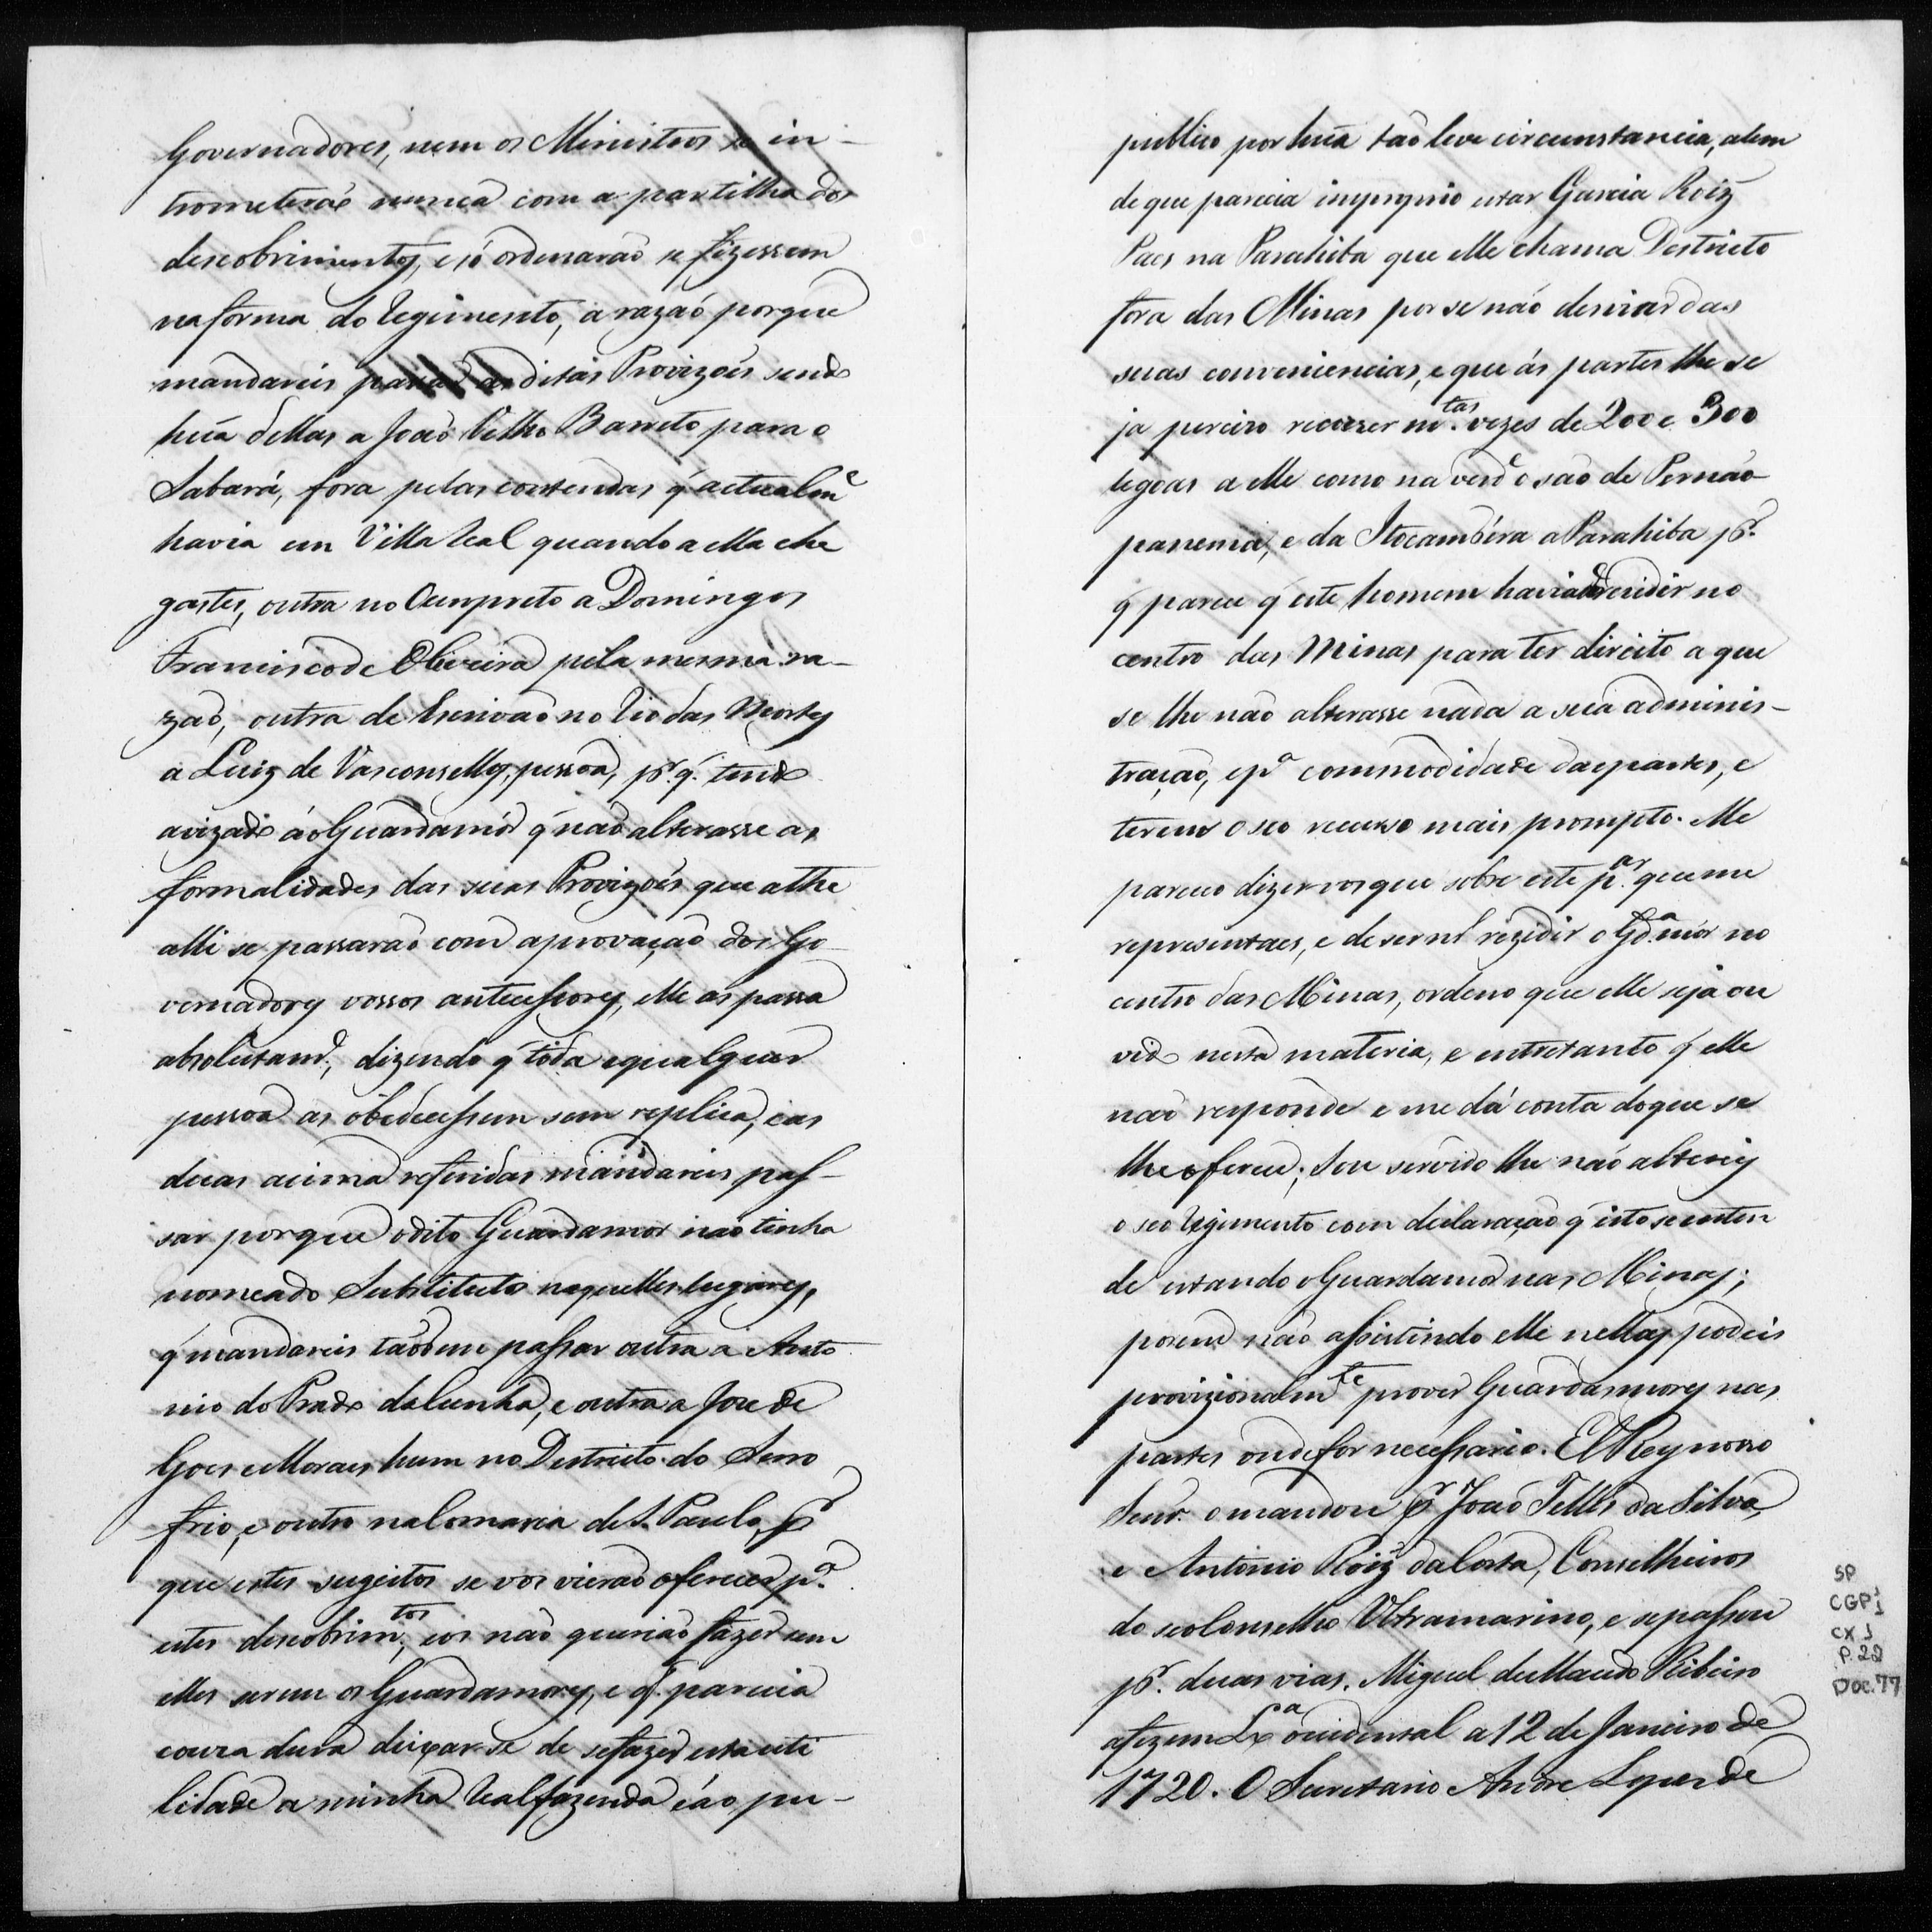 Governadores, nem os Ministros se in-
trometerão nunca com a partilha dos
descobrimentos, e só ordenarão se fizessem
na forma do Regimento, a razaõ porque
mandareis passar as ditas Provizoẽs sendo
hũa dellas a Joaõ Velho Barreto para o
Sabará, fora pelas contendas q̃ actualm.e
havia em Villa Real quando a ella che
gastes, outra no Ouro preto a Domingos
Francisco de Oliveira pela mesma ra-
zaõ, outra de Escrivaõ no Rio das Mortes
a Luiz de Vasconsellos, pessoa, p.r q̃. tendo
avizado áo Guardamór q̃ naõ alterasse as
formalidades das suas Provizoẽs que athe
alli se passaraõ com aprovaçaõ dos Go
vernadores vossos antecessores, elle as passa
absolutam.e, dizendo q̃ toda e qualquer
pessoa as obedecessem sem replica, e as
duas acima referidas mandareis pas-
sar porque o dito Guardamor naõ tinha
nomeado Substituto naquelles lugares,
q̃ mandareis taõbem passar outra a Anto
nio do Prado da Cunha, e outra a Jose de
Goes e Moraes hum no Destricto do Serro
frio, e outro na Comarca de S. Paulo, p.r
que estes sugeitos se vos vieraõ oferecer p.a
estes descobrim.tos, e os naõ queriaõ fazer sem
elles serem os Guardamores, e q̃. parecia
couza dura deixar-se de se fazer esta uti
lidade a minha Real fazenda e áo pu-
publico por hũa taõ leve circunstancia, alem
de que parecia improprio estar Garcia Roiz
Paes na Parahiba que elle chama Destricto
fora das Minas por se naõ desviar das
suas conveniencias, e que ás partes lhe se
ja perciso recorrer m.tas vezes de 200 e 300
legoas a elle como na verd.e o saõ de Pernáo
panema, e da Itocambira a Parahiba p.r
q̃ parece q̃ este homem havia de rezidir no
centro das Minas para ter direito a que
se lhe naõ alterasse nada a sua adminis-
traçaõ, e p.a commodidade das partes, e
terem o seo recurso mais prompto. Me
pareceo dizer-vos que sobre este p.ar que me
representaes, e de ser util rezidir o Gd.a mór no
centro das Minas, ordeno que elle seja ou
vido nesta materia, e entretanto q̃ elle
naõ responde e me dá conta do que se
lhe oferece; Sou servido lhe naõ altereis
o seo Regimento com declaraçaõ q̃ isto se enten
de estando o Guardamor nas Minas;
porem naõ assistindo elle nellas podeis
provizionalm.te prover Guardasmores nas
partes onde for necessario. El Rey nosso
Senr. o mandou p.r Joaõ Telles da Silva,
e Antonio Roiz da Costa, Conselheiros
do seo Conselho Ultramarino, e se passou
p.r duas vias. Miguel de Macedo Ribeiro
a fez em Lx.a occidental a 12 de Janeiro de
1720. O Secretario Andre Lopes de
SP
CGP1
CX 1
P. 22
Doc. 77